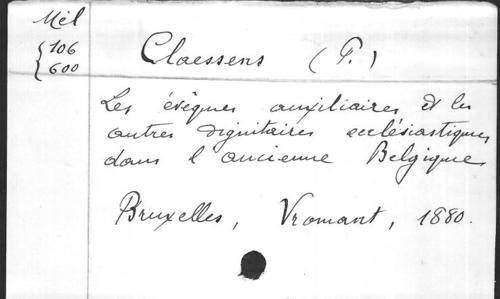 Mél
106
600
Claessens (P.)
Les évêques auxiliaires et les
autres dignitaires ecclésiastiques
dans l'ancienne Belgique
Bruxelles, Vromant, 1880.